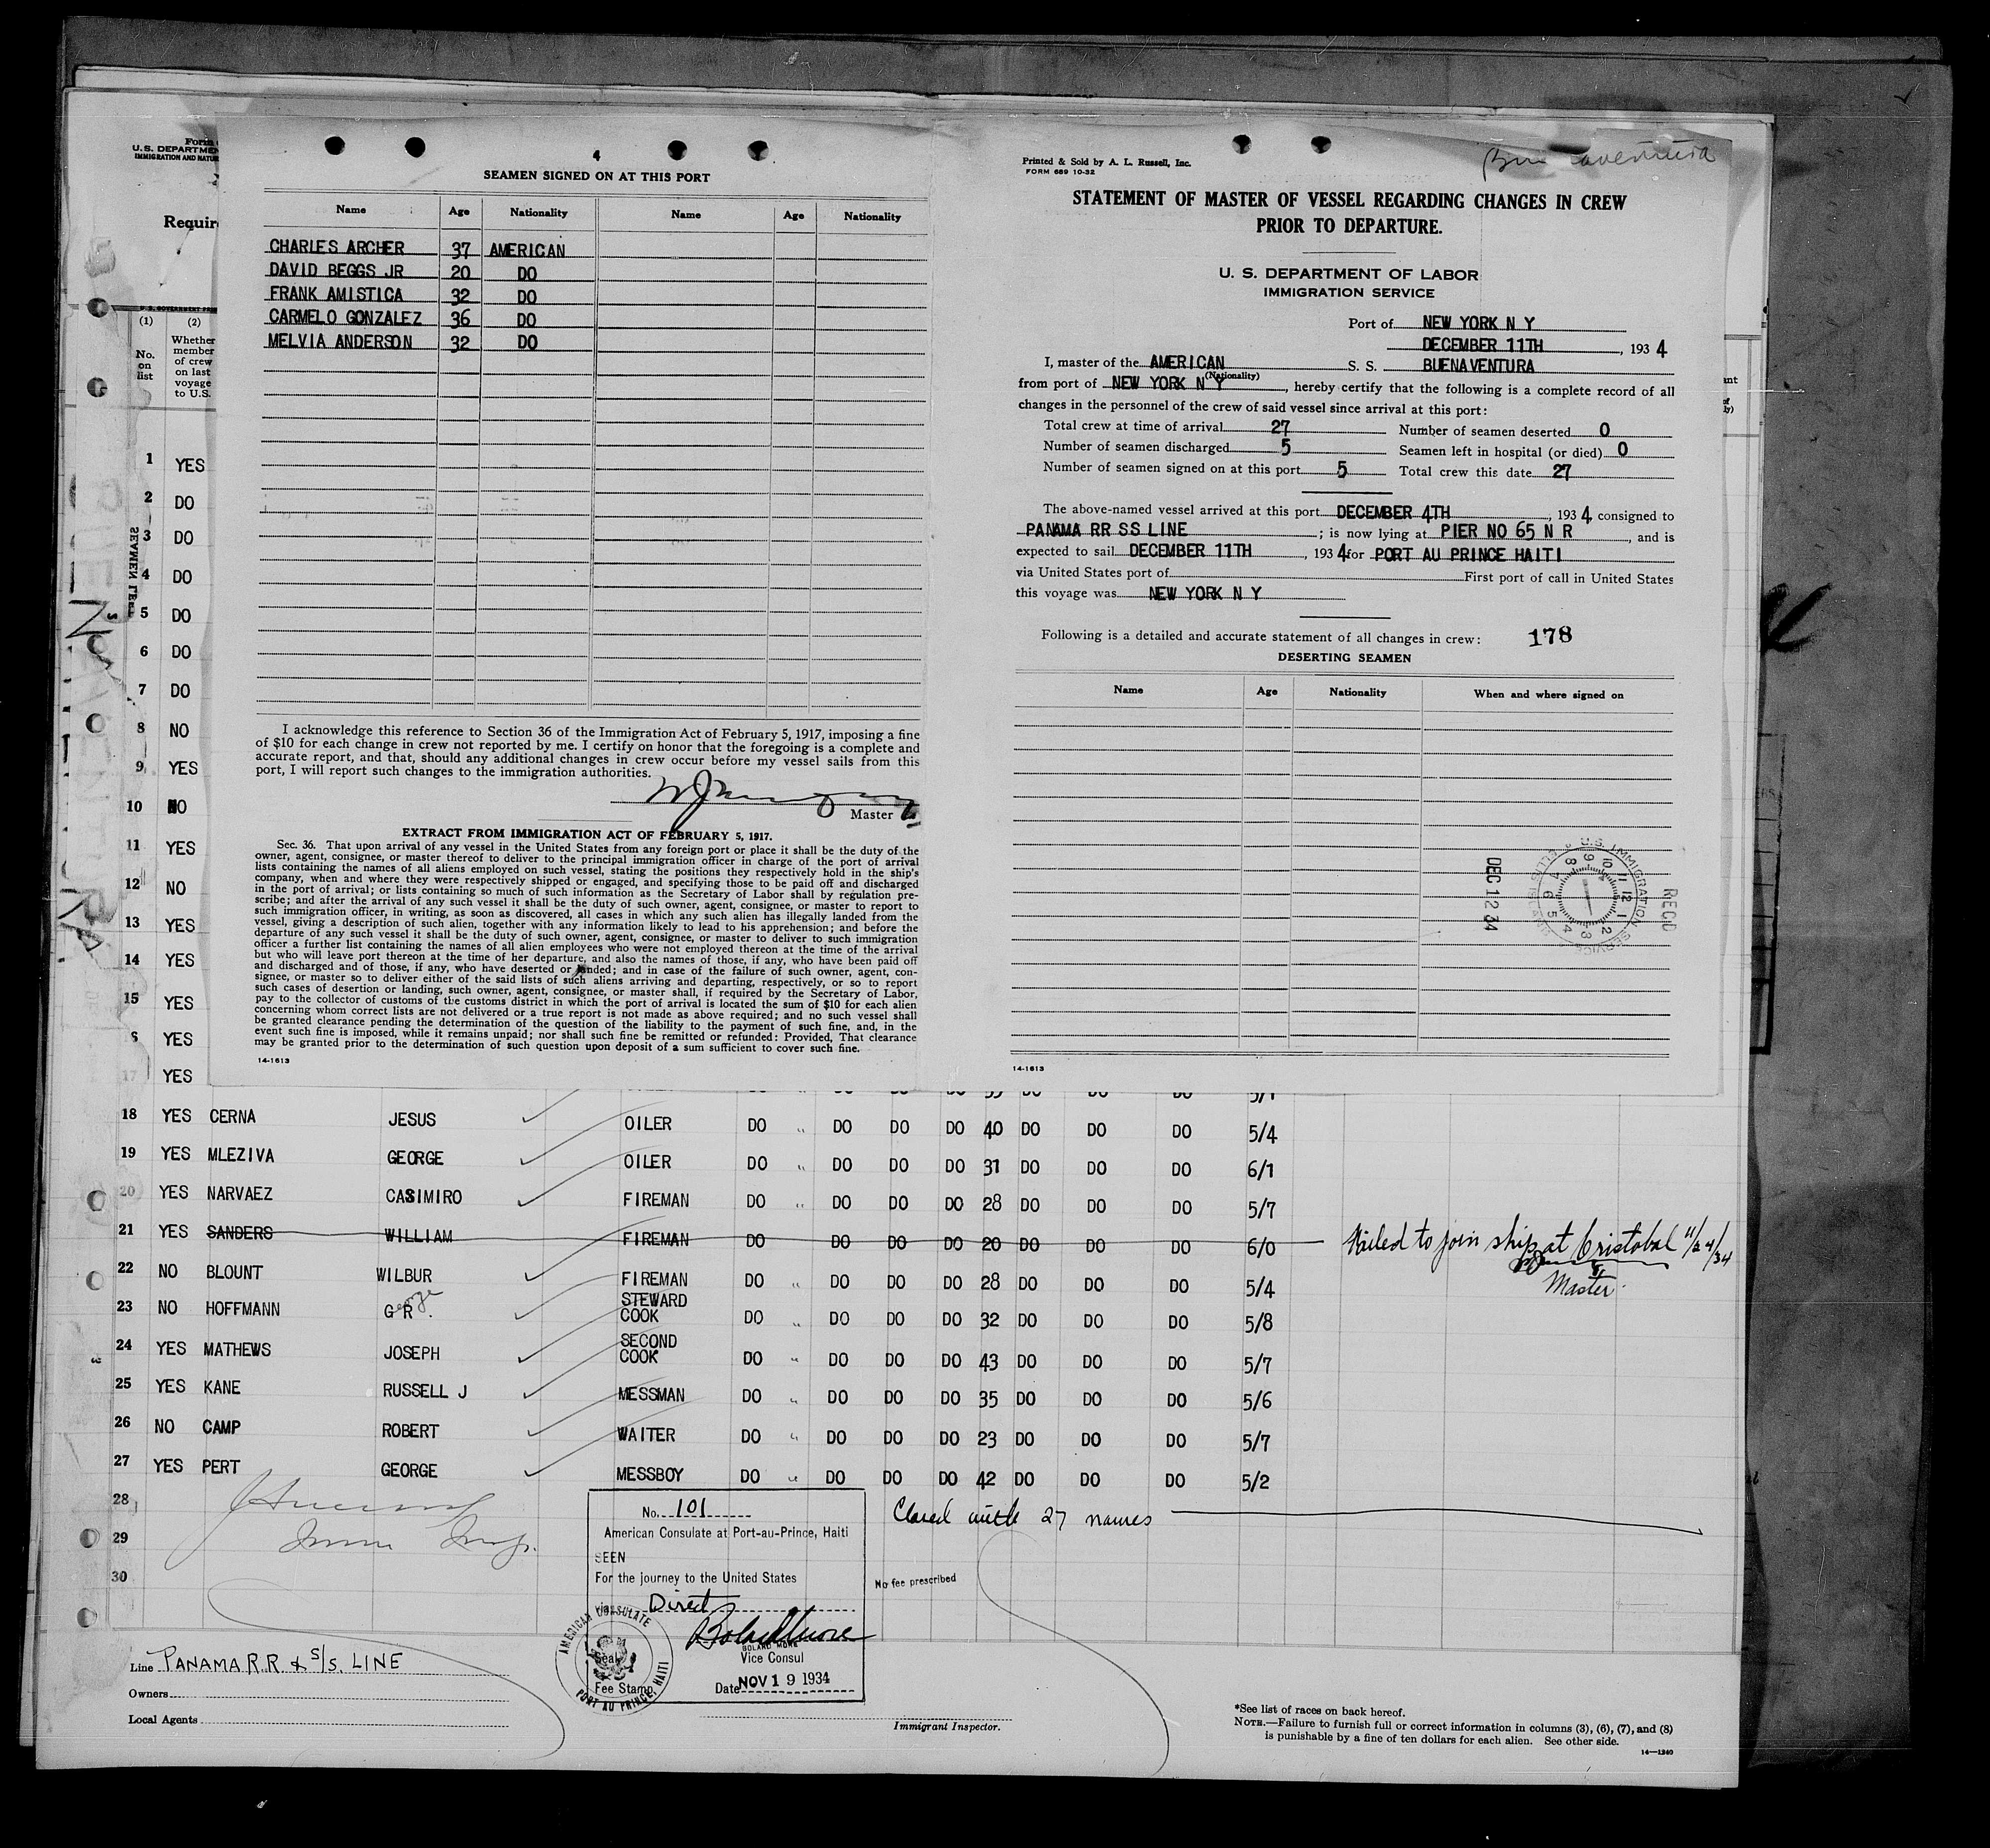 Form
U.S. DEPARTME
IMMIGRATION AND NATUR
Requir
(1) (2)
No. on list
Whether member of crew on last voyage to U.S.
SEAMEN
1 YES
2 DO
3 DO
4 DO
5 DO
6 DO
7 DO
8 NO
9 YES
10 NO
11 YES
12 NO
13 YES
14 YES
15 YES
6 YES
17 YES
4
SEAMEN SIGNED ON AT THIS PORT
Name Age Nationality Name Age Nationality
CHARLES ARCHER 37 AMERICAN
DAVID BEGGS JR 20 DO
FRANK AMISTICA 32 DO
CARMELO GONZALEZ 36 DO
MELVIA ANDERSON 32 DO
I acknowledge this reference to Section 36 of the Immigration Act of February 5, 1917, imposing a fine
of $10 for each change in crew not reported by me. I certify on honor that the foregoing is a complete and
accurate report, and that, should any additional changes in crew occur before my vessel sails from this
port, I will report such changes to the immigration authorities.
Master
EXTRACT FROM IMMIGRATION ACT OF FEBRUARY 5, 1917.
Sec. 36. That upon arrival of any vessel in the United States from any foreign port or place it shall be the duty of the
owner, agent, consignee, or master thereof to deliver to the principal immigration officer in charge of the port of arrival
lists containing the names of all aliens employed on such vessel, stating the positions they respectively hold in the ship's
company, when and where they were respectively shipped or engaged, and specifying those to be paid off and discharged
in the port of arrival; or lists containing so much of such information as the Secretary of Labor shall by regulation pre-
scribe; and after the arrival of any such vessel it shall be the duty of such owner, agent, consignee, or master to report to
such immigration officer, in writing, as soon as discovered, all cases in which any such alien has illegally landed from the
vessel, giving a description of such alien, together with any information likely to lead to his apprehension; and before the
departure of any such vessel it shall be the duty of such owner, agent, consignee, or master to deliver to such immigration
officer a further list containing the names of all alien employees who were not employed thereon at the time of the arrival
but who will leave port thereon at the time of her departure, and also the names of those, if any, who have been paid off
and discharged and of those, if any, who have deserted or landed; and in case of the failure of such owner, agent, con-
signee, or master so to deliver either of the said lists of such aliens arriving and departing, respectively, or so to report
such cases of desertion or landing, such owner, agent, consignee, or master shall, if required by the Secretary of Labor,
pay to the collector of customs of the customs district in which the port of arrival is located the sum of $10 for each alien
concerning whom correct lists are not delivered or a true report is not made as above required; and no such vessel shall
be granted clearance pending the determination of the question of the liability to the payment of such fine, and, in the
event such fine is imposed, while it remains unpaid; nor shall such fine be remitted or refunded: Provided, That clearance
may be granted prior to the determination of such question upon deposit of a sum sufficient to cover such fine.
14-1613
Printed & Sold by A. L. Russell, Inc.
FORM 689 10-32
Buenaventura
STATEMENT OF MASTER OF VESSEL REGARDING CHANGES IN CREW
PRIOR TO DEPARTURE.
U. S. DEPARTMENT OF LABOR
IMMIGRATION SERVICE
Port of NEW YORK N Y
DECEMBER 11TH, 1934
I, master of the AMERICAN S. S. BUENAVENTURA
(Nationality)
from port of NEW YORK N Y, hereby certify that the following is a complete record of all
changes in the personnel of the crew of said vessel since arrival at this port:
Total crew at time of arrival 27 Number of seamen deserted 0
Number of seamen discharged 5 Seamen left in hospital (or died) 0
Number of seamen signed on at this port 5 Total crew this date 27
The above-named vessel arrived at this port DECEMBER 4TH, 1934, consigned to
PANAMA RR SS LINE; is now lying at PIER NO 65 N R, and is
expected to sail DECEMBER 11TH, 1934 for PORT AU PRINCE HAITI
via United States port of First port of call in United States
this voyage was NEW YORK N Y
Following is a detailed and accurate statement of all changes in crew: 178
DESERTING SEAMEN
Name Age Nationality When and where signed on
REC'D
U.S. IMMIGRATION SERVICE
ELLIS ISLAND
DEC 12 34
14-1613
18 YES CERNA JESUS OILER DO " DO DO DO 40 DO DO DO 5/4
19 YES MLEZIVA GEORGE OILER DO " DO DO DO 31 DO DO DO 6/1
20 YES NARVAEZ CASIMIRO FIREMAN DO " DO DO DO 28 DO DO DO 5/7
21 YES SANDERS WILLIAM FIREMAN DO DO DO DO 20 DO DO DO 6/0 Failed to join ship at Cristobal 11/24/34
Master
22 NO BLOUNT WILBUR FIREMAN DO " DO DO DO 28 DO DO DO 5/4
23 NO HOFFMANN G R. George STEWARD COOK DO " DO DO DO 32 DO DO DO 5/8
24 YES MATHEWS JOSEPH SECOND COOK DO " DO DO DO 43 DO DO DO 5/7
25 YES KANE RUSSELL J MESSMAN DO " DO DO DO 35 DO DO DO 5/6
26 NO CAMP ROBERT WAITER DO " DO DO DO 23 DO DO DO 5/7
27 YES PERT GEORGE MESSBOY DO " DO DO DO 42 DO DO DO 5/2
28
29
30
Imm Insp.
Closed with 27 names
No. 101
American Consulate at Port-au-Prince, Haiti
SEEN
For the journey to the United States
via Direct
BOLARD MORE
Vice Consul
Seal
Fee Stamp
Date NOV 19 1934
AMERICAN CONSULATE
PORT AU PRINCE, HAITI
No fee prescribed
Line PANAMA R.R & S/S. LINE
Owners
Local Agents
Immigrant Inspector.
*See list of races on back hereof.
NOTE.—Failure to furnish full or correct information in columns (3), (6), (7), and (8)
is punishable by a fine of ten dollars for each alien. See other side.
14—1240